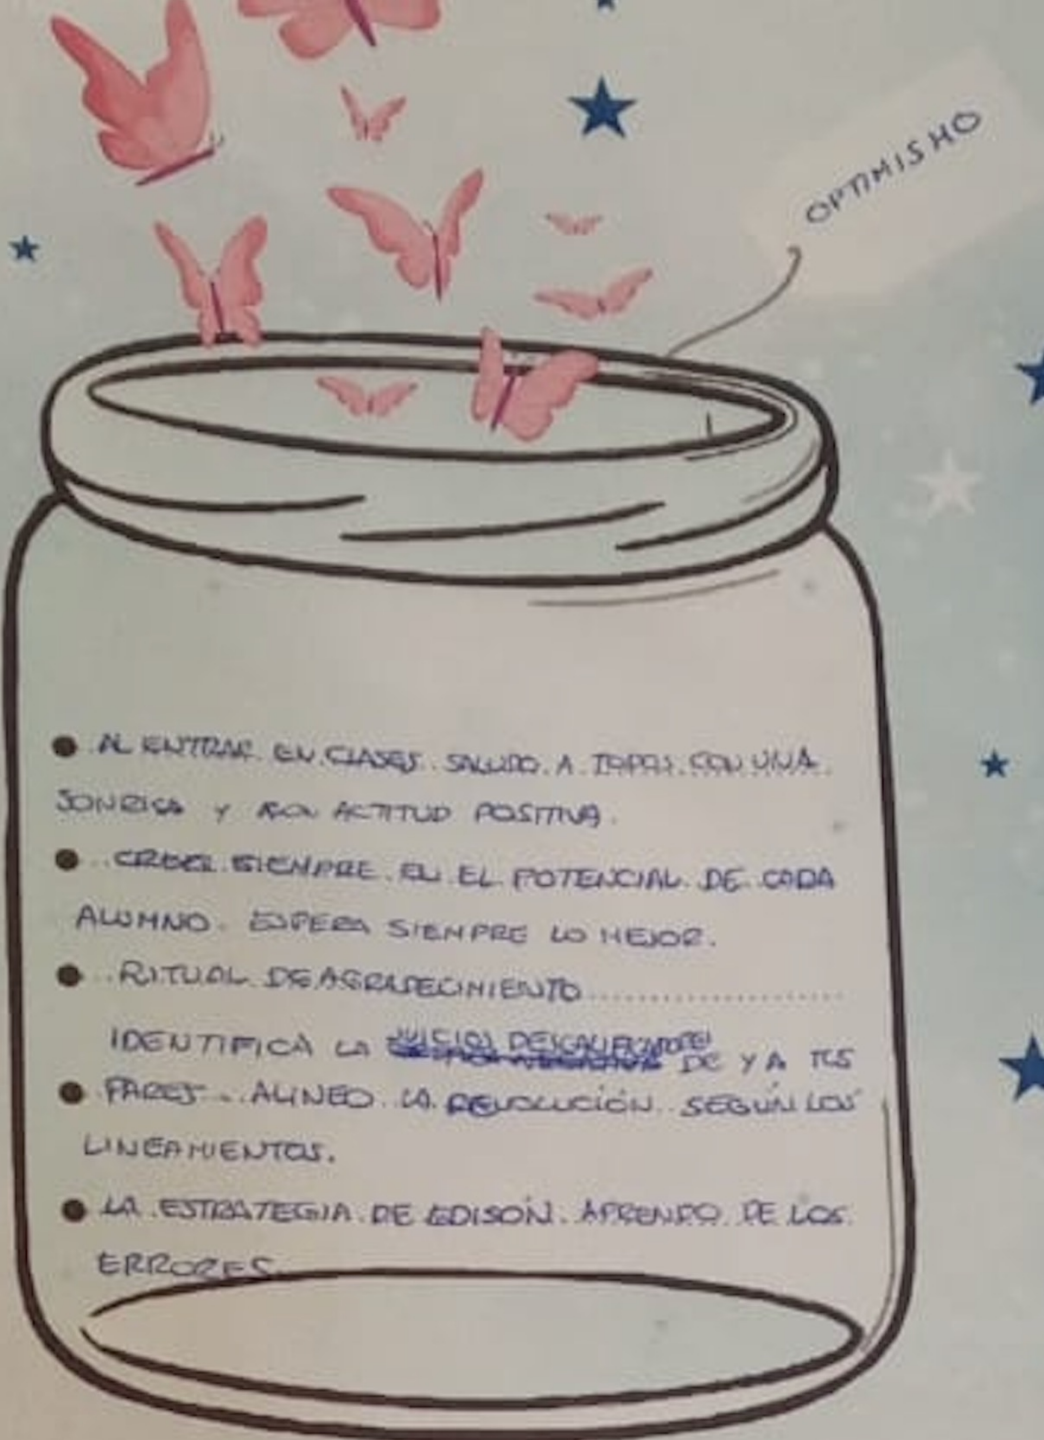 OPTIMISMO
AL ENTRAR EN CLASES SALUDO A TODOS CON UNA
SONRISA Y CON ACTITUD POSITIVA.
CREER SIEMPRE EN EL POTENCIAL DE CADA
ALUMNO. ESPERA SIEMPRE LO MEJOR.
RITUAL DE AGRADECIMIENTO
IDENTIFICA LA JUICIOS DESCALIFICADORES DE Y A TUS
PARES. ALINEO LA DEVOLUCIÓN SEGÚN LOS
LINEAMIENTOS.
LA ESTRATEGIA DE EDISÓN. APRENDO DE LOS
ERRORES